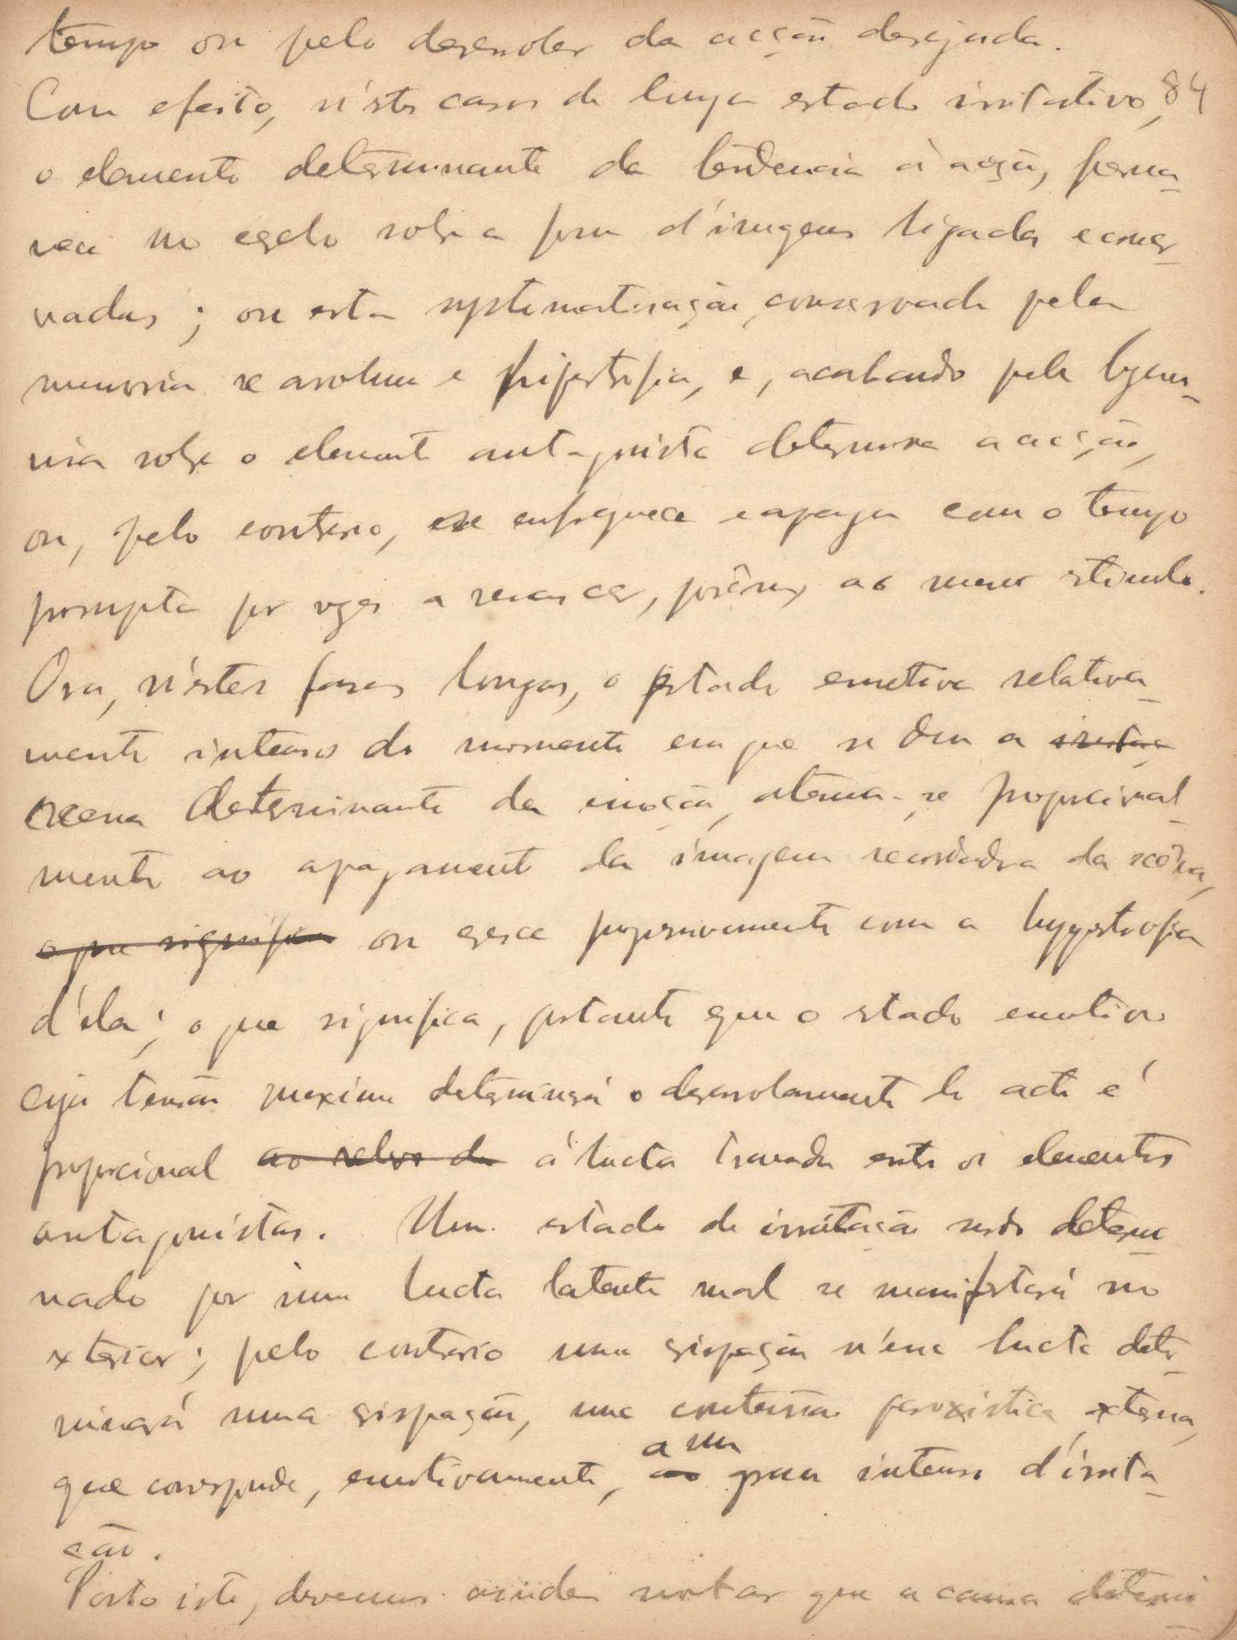 tempo ou pelo desenrolar da acção desejada.
Com efeito, n'estes casos de longo estado irritativo, 84
o elemento determinante da tendencia á acção, perma-
nece no ser sobre a forma d'imagens ligadas e conser-
vadas; ou esta systematisação, conservada pela
memoria se avoluma e hipertrofia, e, acabando pela hegemo-
nia sobre o elemento antagonista determina a acção,
ou, pelo contrario, se enfraquece e apaga com o tempo
prompta por vezes a renascer, porém, ao menor estimulo.
Ora, n'estas fases longas, o estado emotivo relativa-
mente intenso do momento em que se deu a
scena determinante da emoção, atenua-se proporcional-
mente ao apagamento da imagem recordadora da scena,
o que significa ou cresce progressivamente com a hypertrofia
d'ela; o que significa, portanto que o estado emotivo
cuja tensão maxima determinará o desenrolamento do acto é
proporcional ao relevo da á lucta travada entre os elementos
antagonistas. Um estado de irritação sendo determi-
nado por uma lucta latente mal se manifestará no
exterior; pelo contrario uma crispação n'essa lucta deter-
minará uma crispação, uma contensão paroxistica, externa,
que corresponde, emotivamente, ao a um grau intenso d'irrita-
ção.
Posto isto, devemos ainda notar que a causa determi-